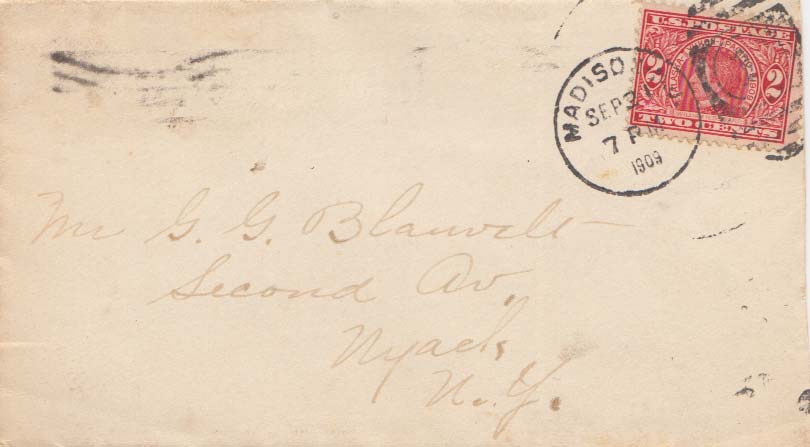 U.S. POSTAGE
2 2
TWO CENTS
MADISO
SEP 3
7 P M
1909
Mr G. G. Blauvelt
Second Av.
Nyack
N. Y.